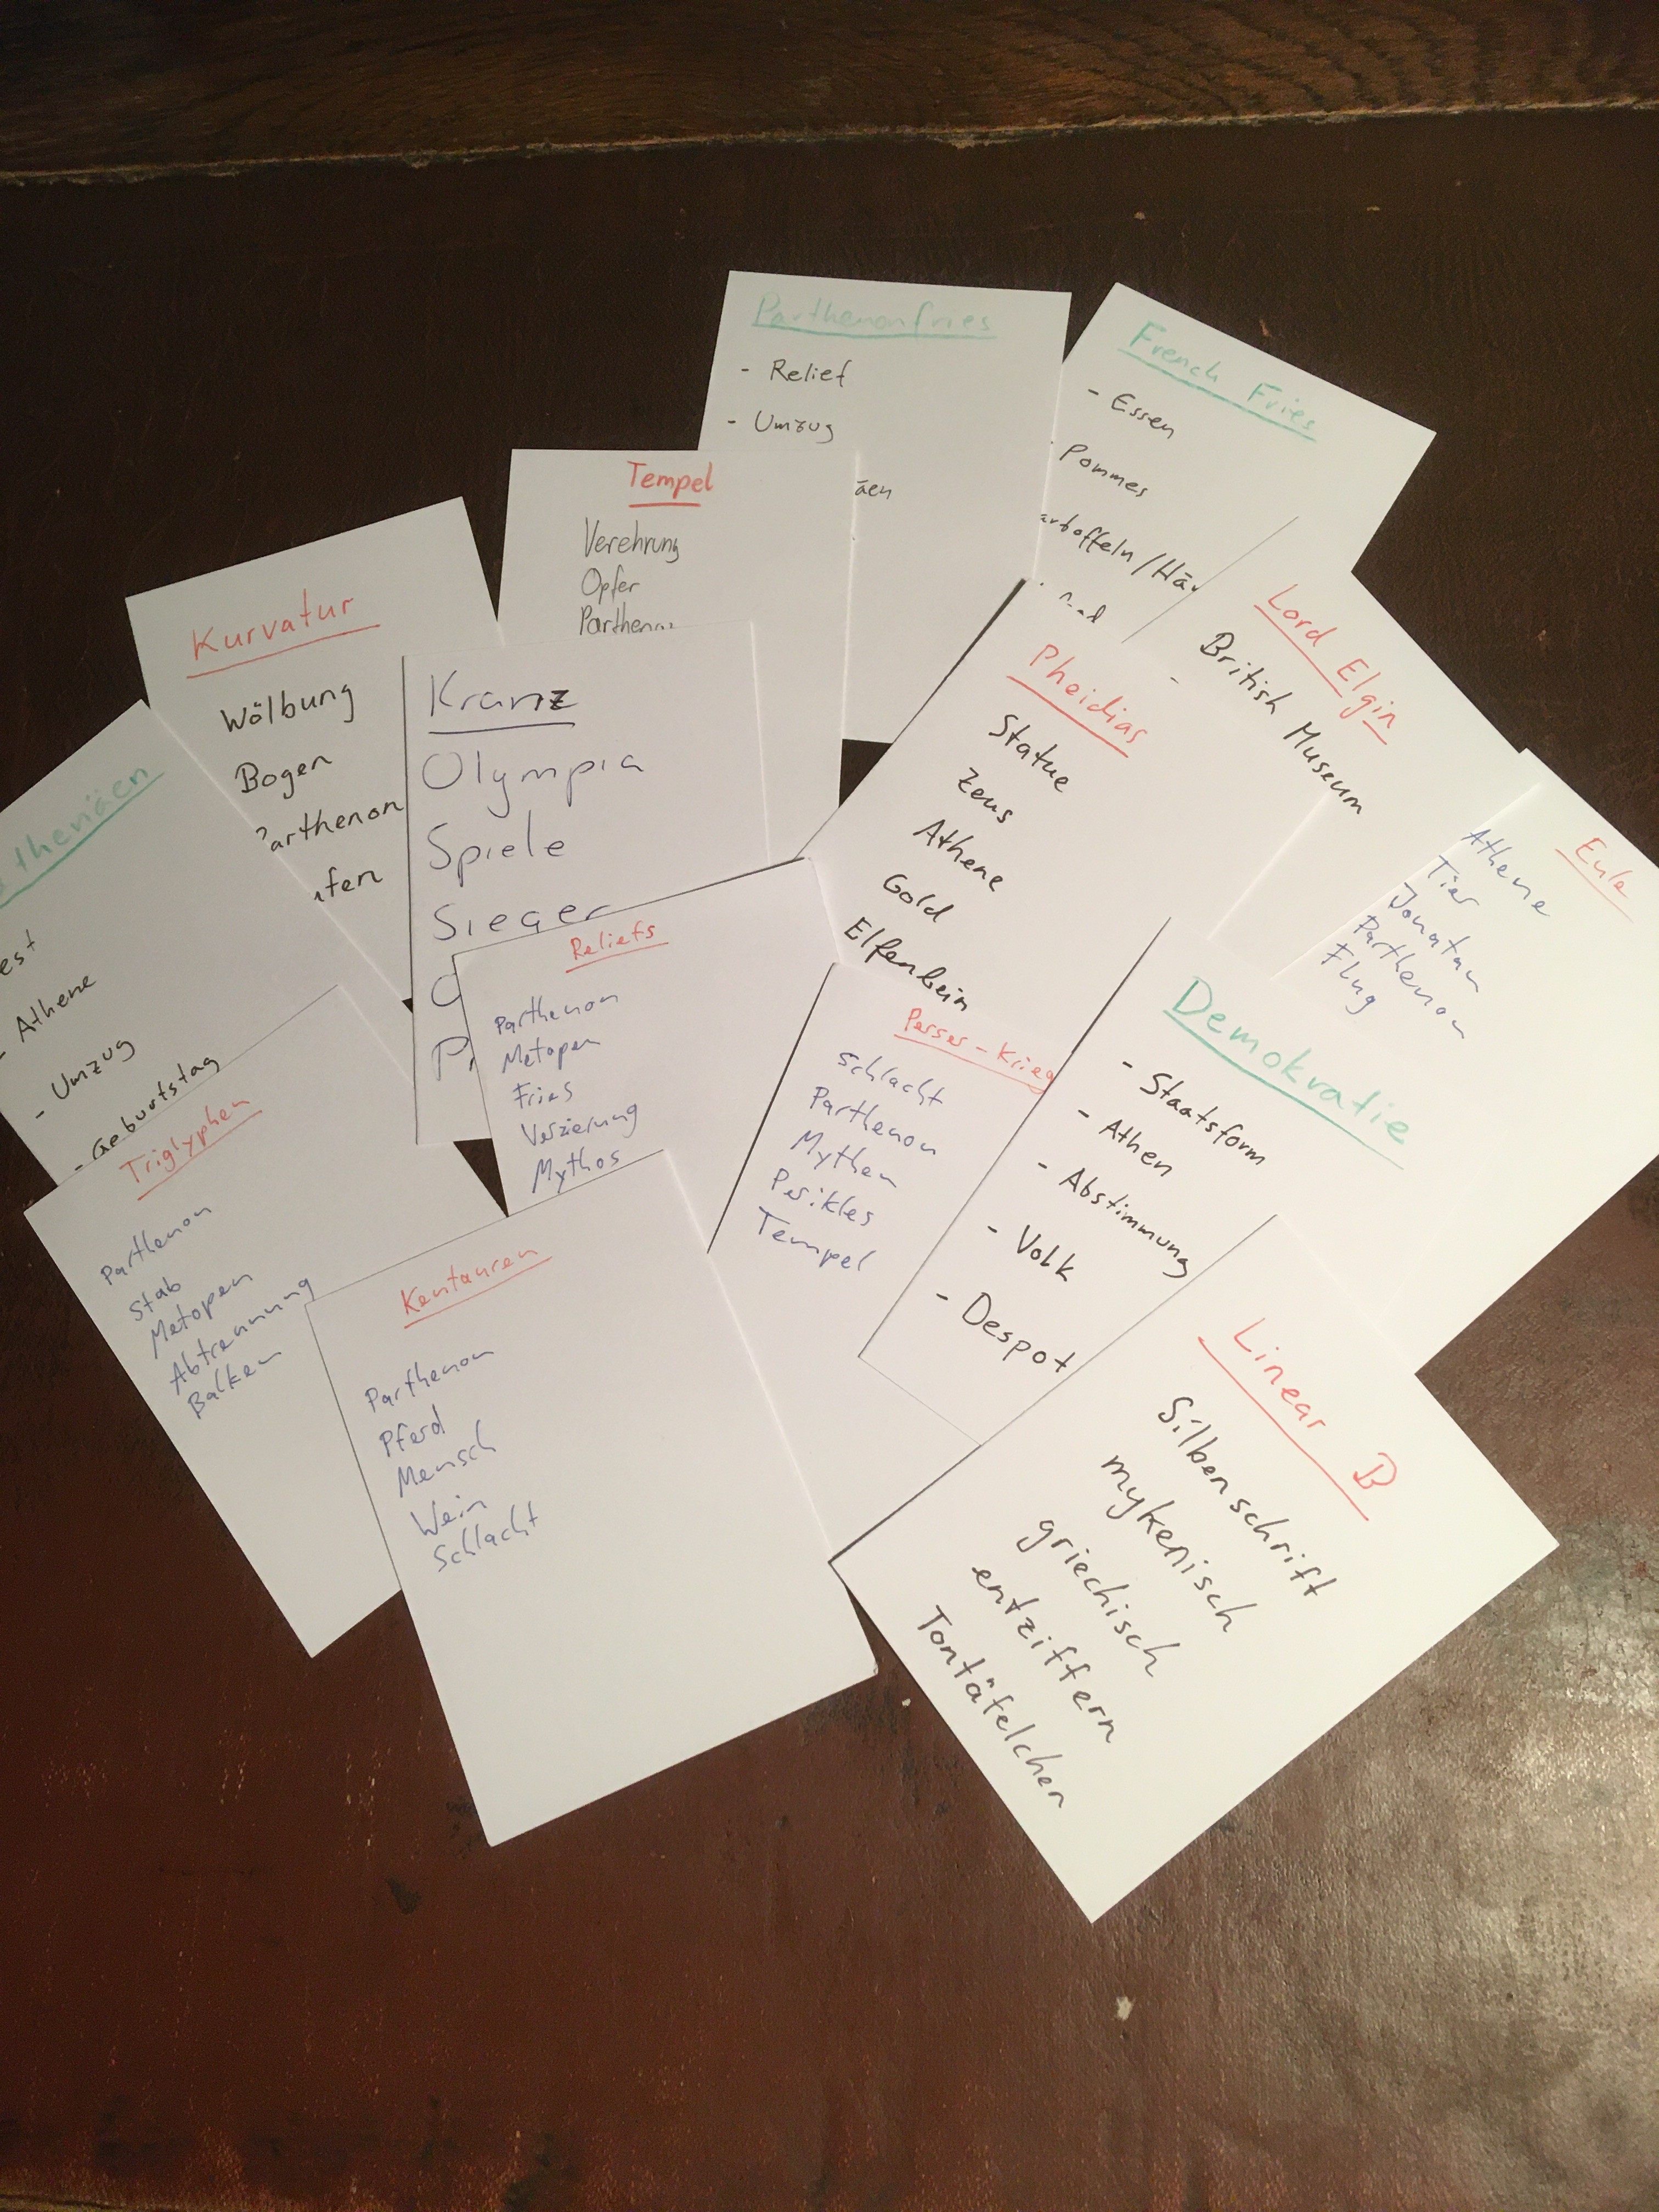 Parthenonfries
- Relief
- Umzug
äen
French Fries
- Essen
Pommes
artoffeln / Hä
Tempel
Verehrung
Opfer
Parthenon
Kurvatur
Wölbung
Bogen
Parthenon
fen
Kranz
Olympia
Spiele
Sieger
Lord Elgin
British Museum
Pheidias
Statue
Zeus
Athene
Gold
Elfenbein
Eule
Athene
Tier
Jonatan
Parthenon
Flug
thenäen
est
- Athene
- Umzug
- Geburtstag
Reliefs
Parthenon
Metopen
Fries
Verzierung
Mythos
Perser-Krieg
Schlacht
Parthenon
Mythen
Perikles
Tempel
Demokratie
- Staatsform
- Athen
- Abstimmung
- Volk
- Despot
Triglyphen
Parthenon
Stab
Metopen
Abtrennung
Balken
Kentauren
Parthenon
Pferd
Mensch
Wein
Schlacht
Linear B
Silbenschrift
mykenisch
griechisch
entziffern
Tontäfelchen